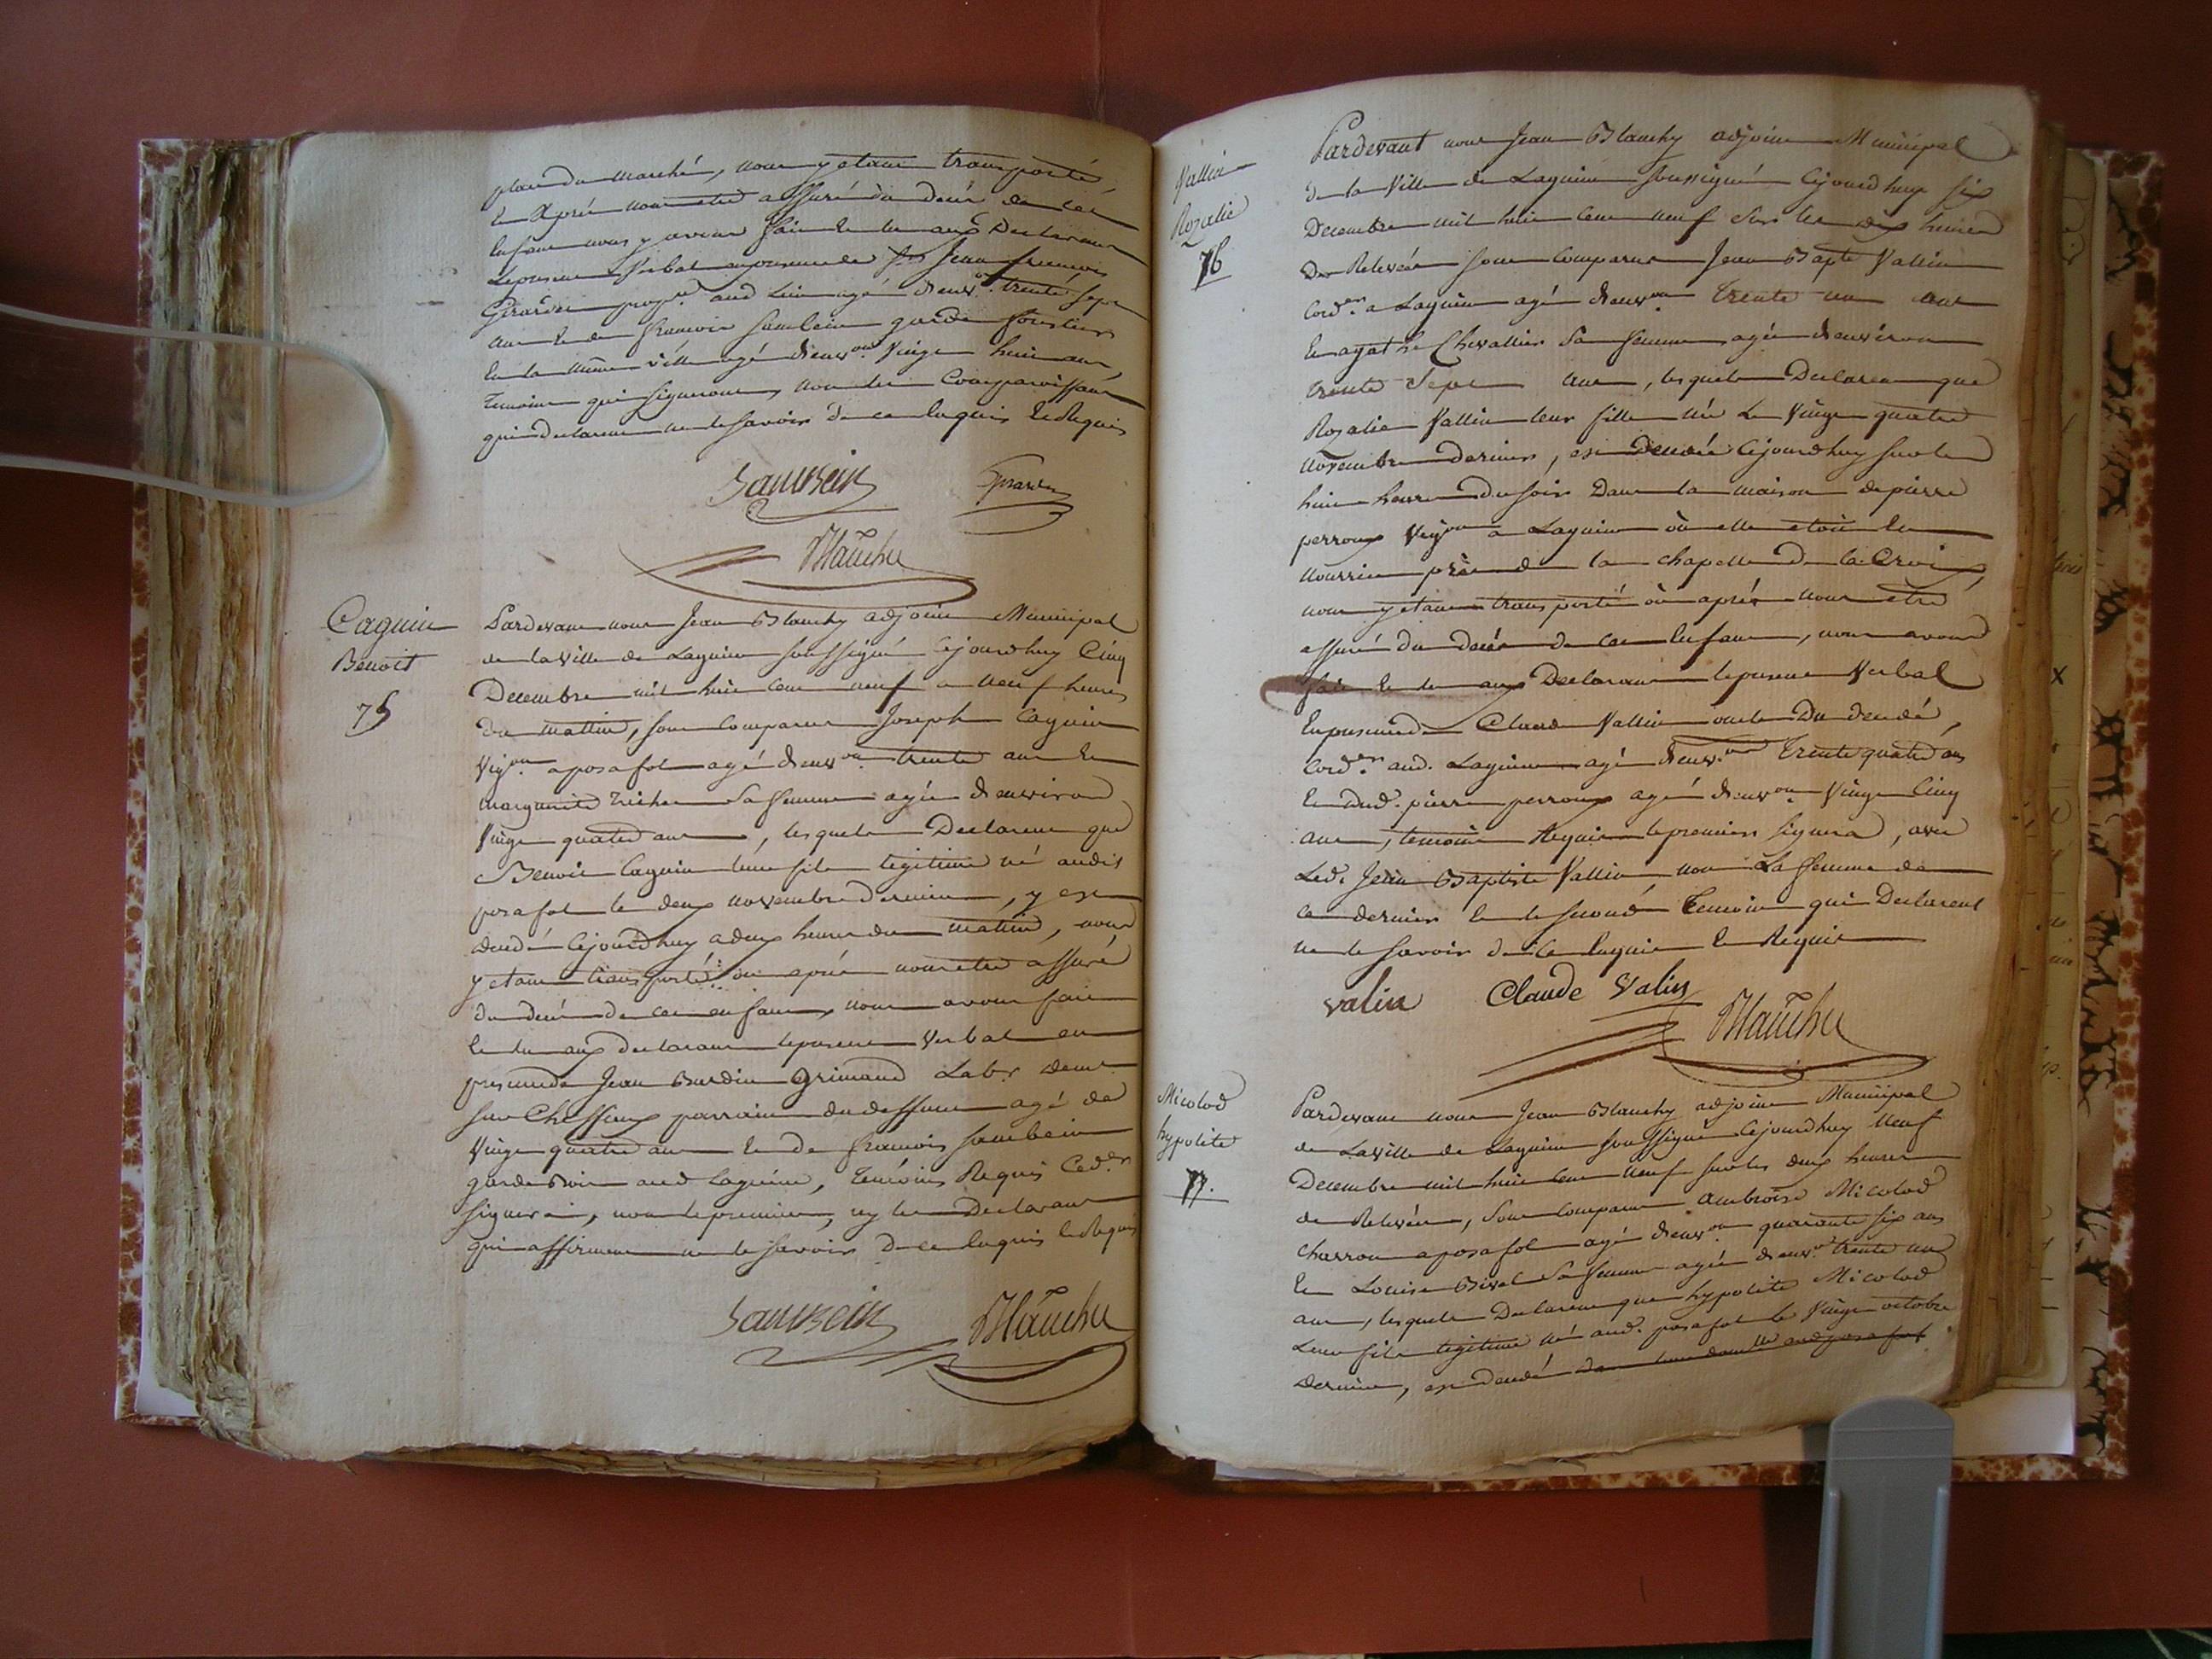 place du marché, nous y etant transporté,
et Aprés nous etre assuré du décés de cet
Enfant nous y avons fait et lu aux Declarants
Le present Verbal en presence de Jean francois
Girardin prop.re aud lieu agé d'env.on trente sept
ans et de francois sambein garde forestier
en la même ville agé d'env.on Vingt huit ans,
temoins qui signeront, non les Comparoissants
qui declarent ne le savoir de ce Enquis et Requis
Sambein Girardin
Blanchy
Caquin
Benoit
75
Pardevant nous Jean Blanchy adjoint Municipal
de la Ville de Lagnieu soussigné Cejourd'huy Cinq
Decembre mil huit cent neuf a neuf heures
du mattin, sont Comparus Joseph Caquin
Vig.on a posafol agé d'env.on trente ans et
marguerite sa femme agée d'environ
Vingt quatre ans, lesquels Declarent que
Benoit Caquin leur fils legitime né audit
posafol le deux novembre dernier, y est
decedé Cejourdhuy a deux heures du mattin, nous
y etant transporté où aprés nous etre assuré
du decés de cet enfant, nous avons fait
et lu aux declarants le present Verbal en
presence de Jean Burdin Grimaud Lab.r dem.t
sur Chessieux parrain du deffunt agé de
Vingt quatre ans et de francois sambein
garde Bois aud Lagnieu, temoins Requis Ce d.er
signera, non le premier, ny les Declarants
qui affirment ne le savoir de ce Enquis et Requis
Sambein Blanchy
Vallin
Rozalie
76
Pardevant nous Jean Blanchy adjoint Municipal
de la Ville de Lagnieu soussigné Cejourd'huy six
Decembre mil huit cent neuf sur les dix heures
De Relevée sont Comparus Jean Bapte Vallin
Cord.er a Lagnieu agé d'env.on trente un ans
et agathe Chevallier sa femme agée d'environ
trente sept ans, lesquels Declarent que
Rozalie Vallin leur fille née le Vingt quatre
novembre dernier, est Decedée Cejourdhuy sur les
huit heures du soir Dans la maison de pierre
perroux Vig.on a Lagnieu où elle etoit en
nourrice près de la chapelle De la Croix,
nous y etant transporté où aprés nous etre
assuré du decés de cet Enfant, nous avons
fait et lu aux Declarants le present Verbal
En presence de Claude Vallin oncle Du decedé,
Cord.er aud. Lagnieu agé d'env.on trente quatre ans
et dud. pierre perroux agé d'env.on Vingt Cinq
ans, temoins Requis le premier signera, avec
Led. Jean Baptiste Vallin, non La femme de
ce dernier et le second Temoin qui Declarent
ne le savoir de ce Enquis et Requis
valin Claude Valin
Blanchy
Micolod
hypolite
77.
Pardevant nous Jean Blanchy adjoint Municipal
de La Ville de Lagnieu soussigné Cejourdhuy Neuf
Decembre mil huit cent Neuf sur les deux heures
de Relevée, sont Comparus ambroise Micolod
charron a posafol agé d'env.on quarante six ans
et Louise Bivel sa femme agée d'env.on trente un
ans, lesquels Declarent que hypolite Micolod
Leur fils legitime né aud. posafol le Vingt octobre
dernier, est decedé dans leur domicile aud posafol